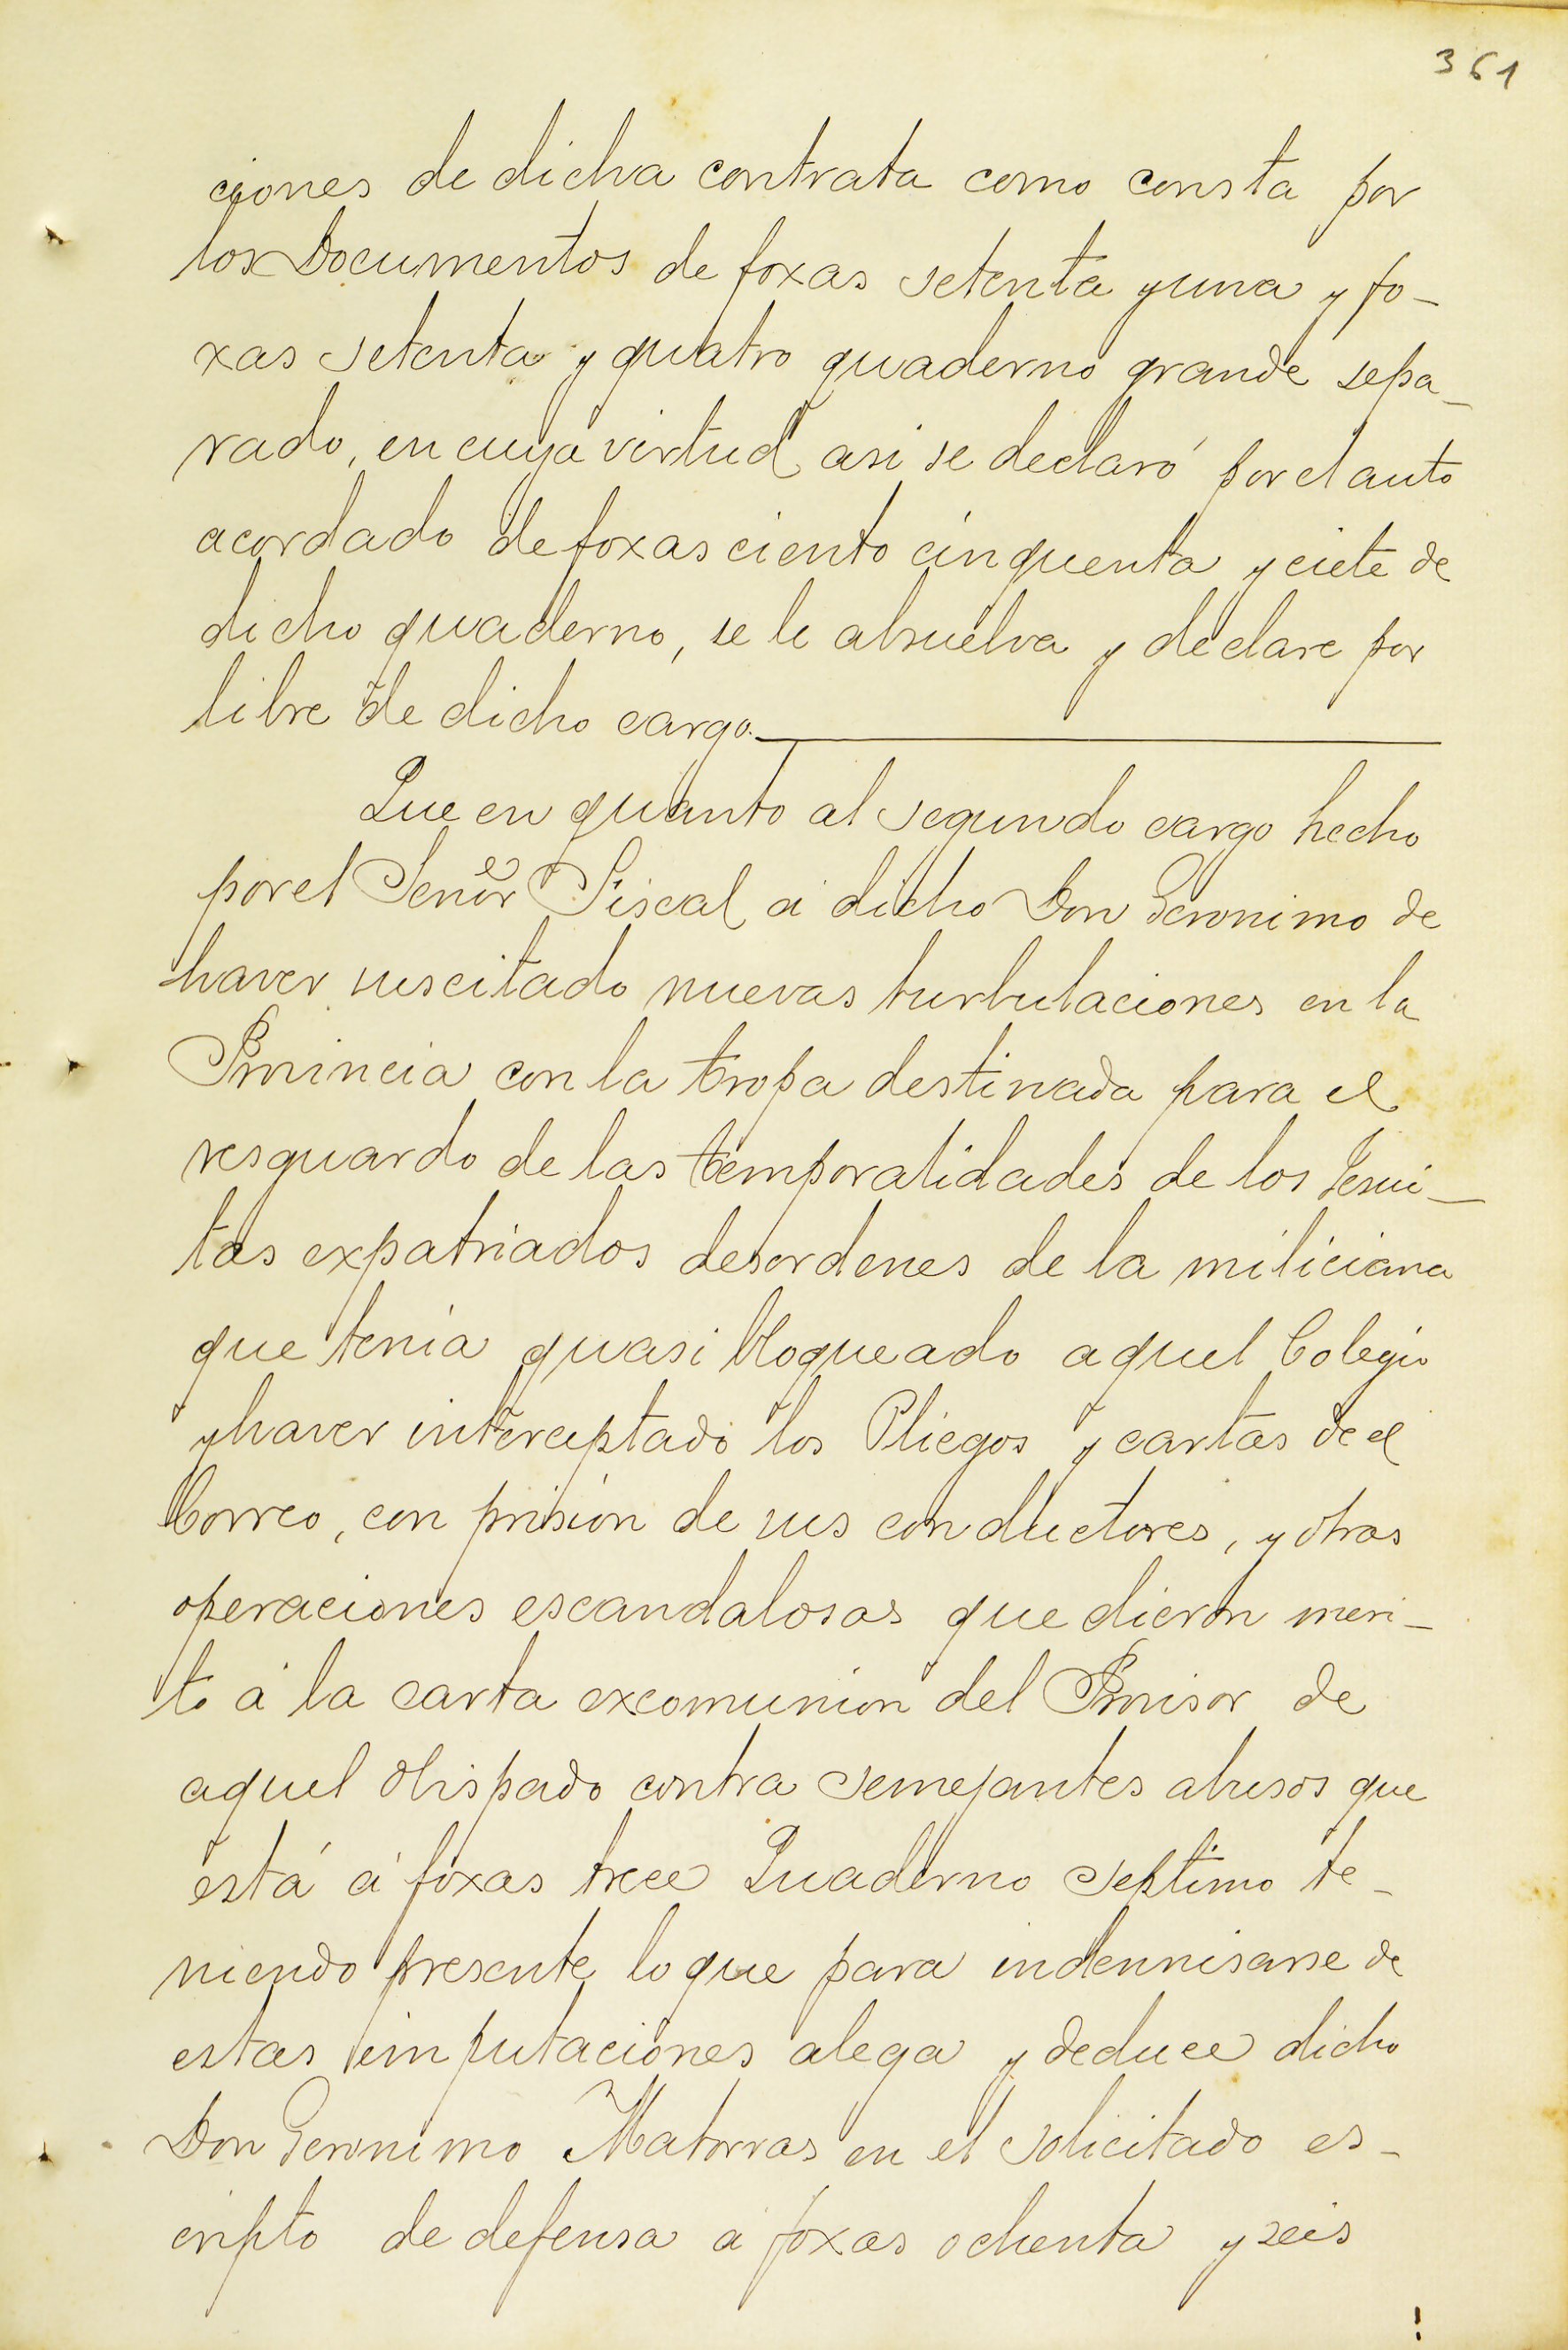 361
ciones de dicha contrata como consta por
los Documentos de foxas setenta y una y fo-
xas setenta y quatro quaderno grande sepa-
rado, en cuya virtud asi se declaró por el auto
acordado de foxas ciento cinquenta y ciete de
dicho quaderno, se le absuelva y declare por
libre de dicho cargo.
Que en quanto al segundo cargo hecho
por el Señor Fiscal á dicho Don Geronimo de
haver suscitado nuevas turbulaciones en la
Provincia con la tropa destinada para el
resguardo de las temporalidades de los Jesui-
tas expatriados desordenes de la miliciana
que tenia quasi bloqueado aquel Colegio
y haver interceptado los Pliegos y cartas de el
Correo, con prision de sus conductores, y otras
operaciones escandalosas que dieron meri-
to á la carta excomunion del Provisor de
aquel Obispado contra semejantes abusos que
está á foxas trece Quaderno septimo te-
niendo presente lo que para indennisarse de
estas imputaciones alega y deduce dicho
Don Geronimo Matorras en el solicitado es-
cripto de defensa á foxas ochenta y seis